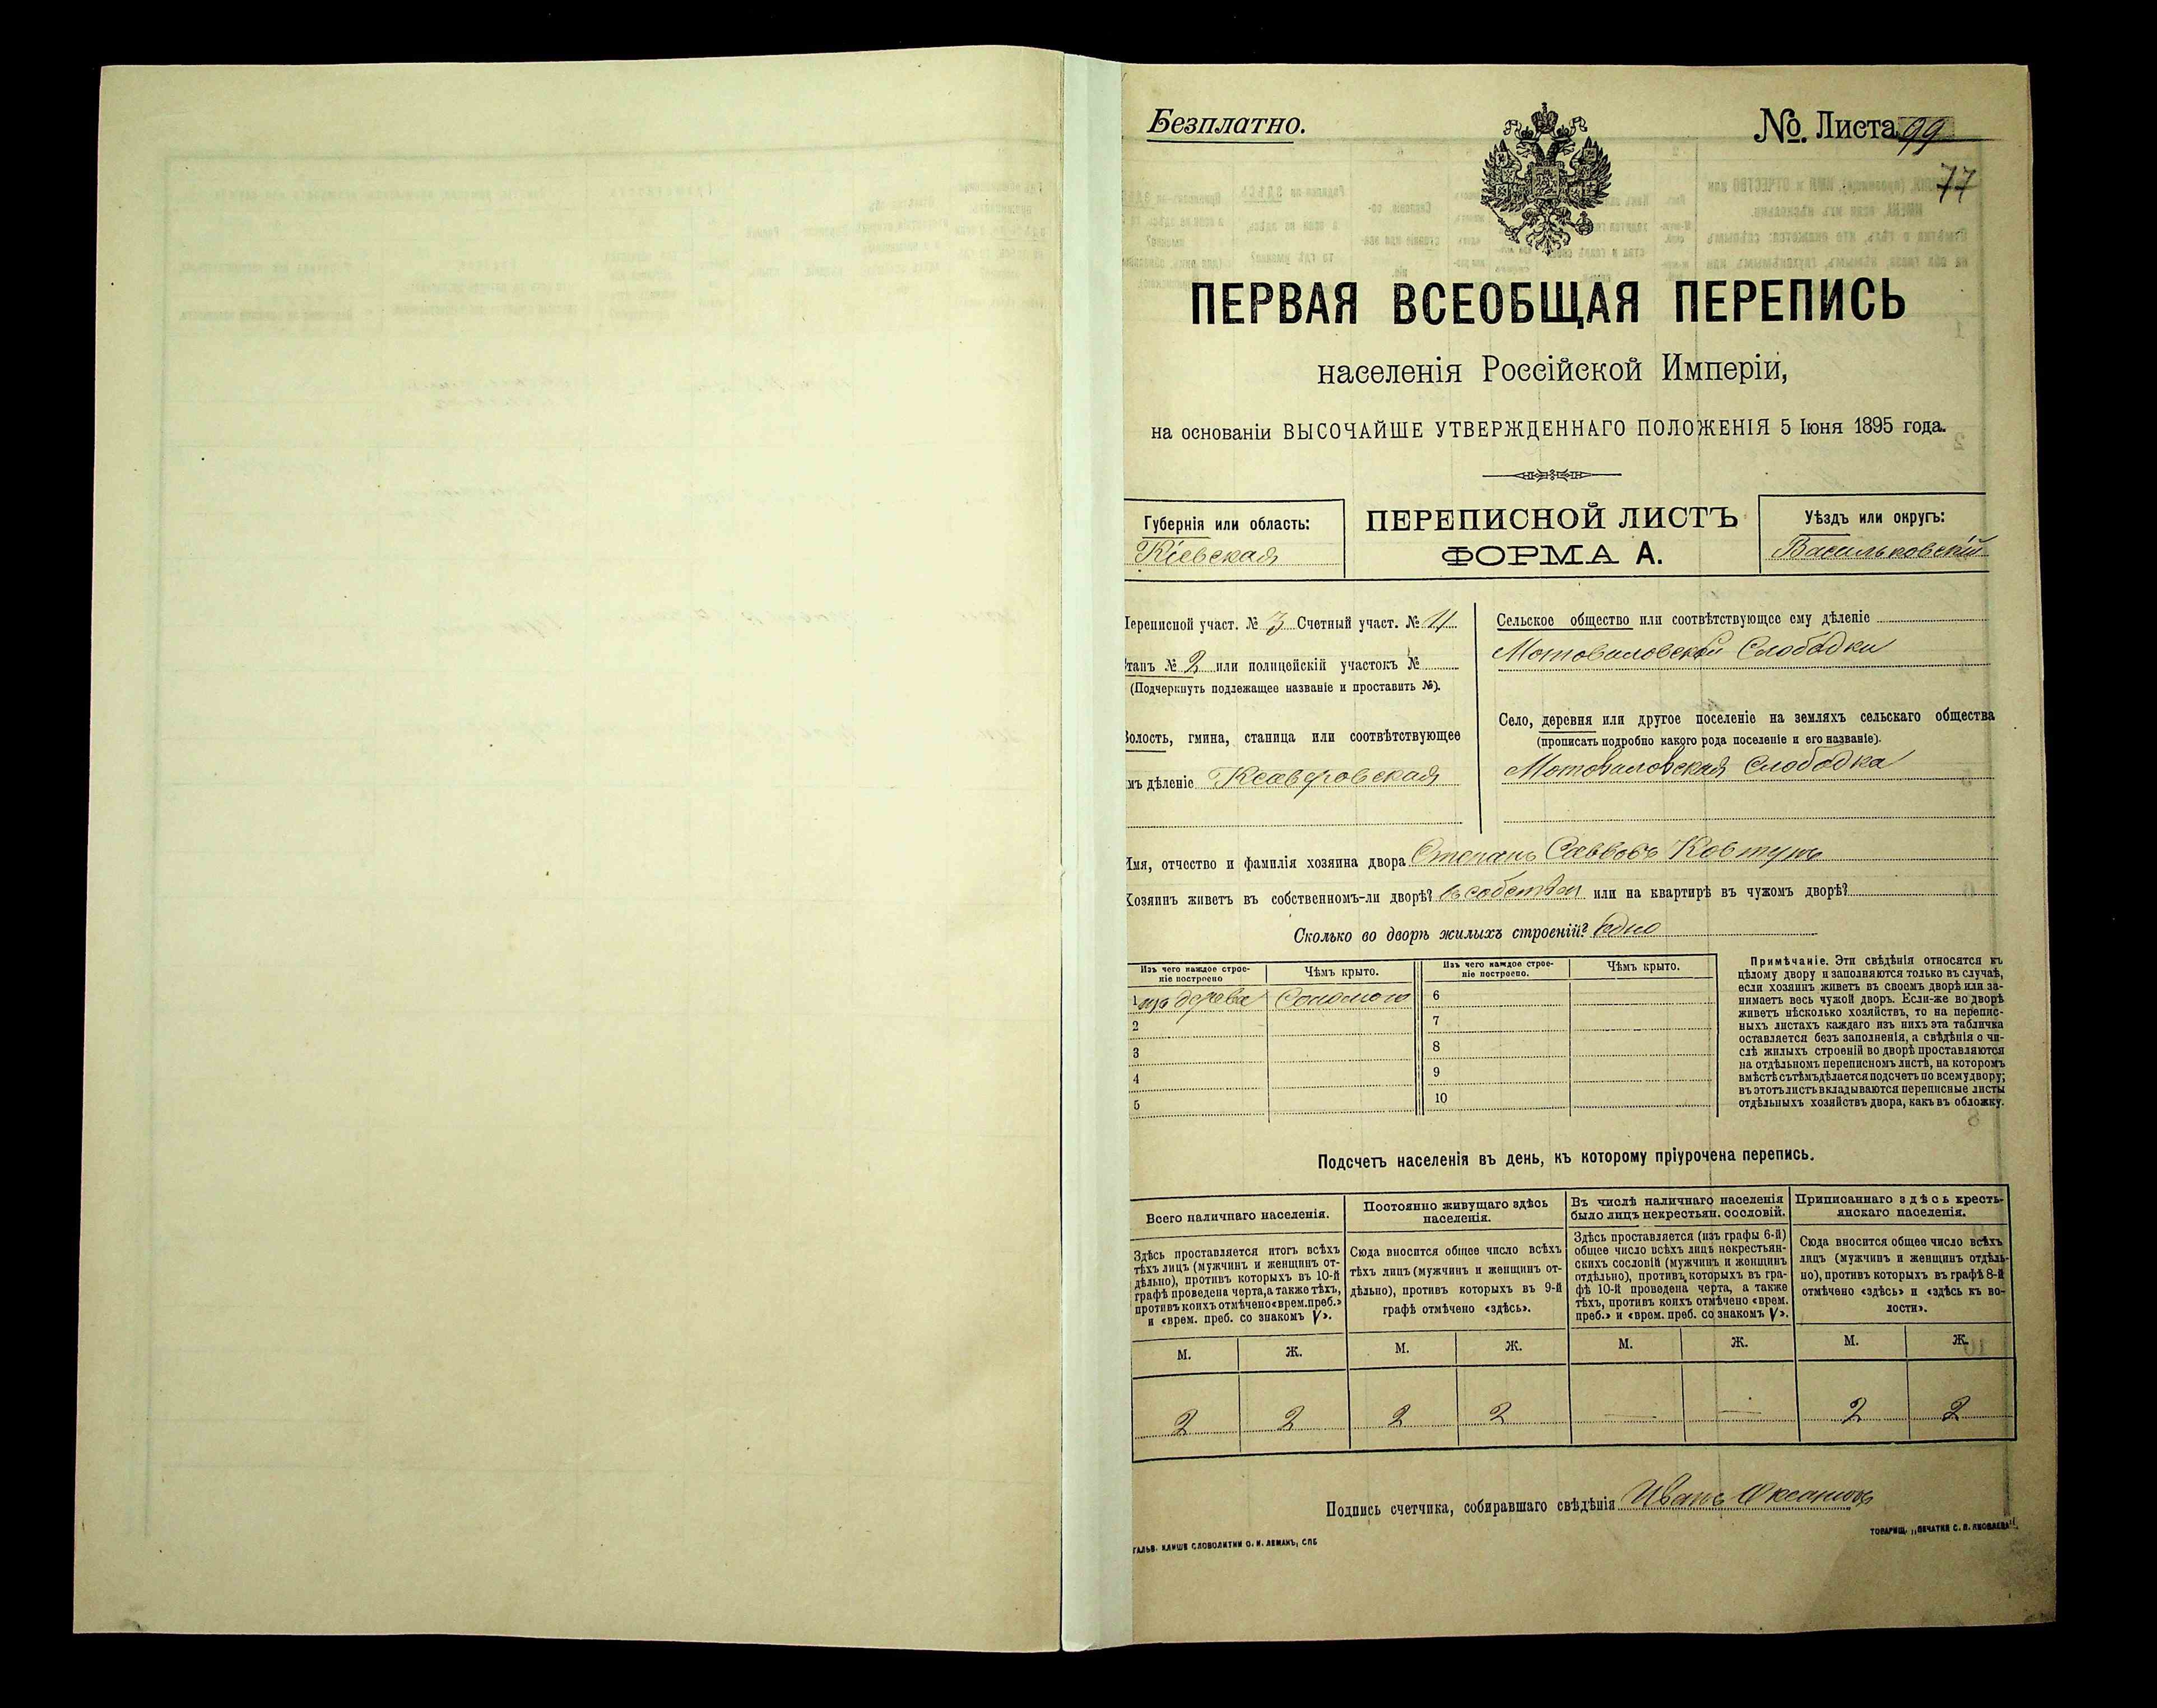 Безплатно.
№ Листа 99
77
ПЕРВАЯ ВСЕОБЩАЯ ПЕРЕПИСЬ
населенія Россійской Имперіи,
на основаніи ВЫСОЧАЙШЕ УТВЕРЖДЕННАГО ПОЛОЖЕНІЯ 5 Іюня 1895 года.
Губернія или область:
Кіевская
ПЕРЕПИСНОЙ ЛИСТЪ
ФОРМА А.
Уѣздъ или округъ:
Васильковскій
Переписной участ. № 3 Счетный участ. № 11
Станъ № 2 или полицейскій участокъ №
(Подчеркнуть подлежащее названіе и проставить №).
Волость, гмина, станица или соотвѣтствующее
имъ дѣленіе Ксаверовская
Сельское общество или соотвѣтствующее ему дѣленіе
Мотовиловской Слободки
Село, деревня или другое поселеніе на земляхъ сельскаго общества
(прописать подробно какого рода поселеніе и его названіе).
Мотовиловская Слободка
Имя, отчество и фамилія хозяина двора Степанъ Саввовъ Ковтунъ
Хозяинъ живетъ въ собственномъ-ли дворѣ? въ собствен или на квартирѣ въ чужомъ дворѣ?
Сколько во дворѣ жилыхъ строеній? Одно
Изъ чего каждое строе-
ніе построено
Чѣмъ крыто.
Изъ чего каждое строе-
ніе построено.
Чѣмъ крыто.
1 изъ дерева Соломою
2
3
4
5
6
7
8
9
10
Примѣчаніе. Эти свѣдѣнія относятся къ
цѣлому двору и заполняются только въ случаѣ,
если хозяинъ живетъ въ своемъ дворѣ или за-
нимаетъ весь чужой дворъ. Если-же во дворѣ
живетъ нѣсколько хозяйствъ, то на перепис-
ныхъ листахъ каждаго изъ нихъ эта табличка
оставляется безъ заполненія, а свѣдѣнія о чи-
слѣ жилыхъ строеній во дворѣ проставляются
на отдѣльномъ переписномъ листѣ, на которомъ
вмѣстѣ съ тѣмъ дѣлается подсчетъ по всему двору;
въ этотъ листъ вкладываются переписные листы
отдѣльныхъ хозяйствъ двора, какъ въ обложку.
Подсчетъ населенія въ день, къ которому пріурочена перепись.
Всего наличнаго населенія.
Здѣсь проставляется итогъ всѣхъ
тѣхъ лицъ (мужчинъ и женщинъ от-
дѣльно), противъ которыхъ въ 10-й
графѣ проведена черта, а также тѣхъ,
противъ коихъ отмѣчено «врем. преб.»
и «врем. преб. со знакомъ V».
Постоянно живущаго здѣсь
населенія.
Сюда вносится общее число всѣхъ
тѣхъ лицъ (мужчинъ и женщинъ от-
дѣльно), противъ которыхъ въ 9-й
графѣ отмѣчено «здѣсь».
Въ числѣ наличнаго населенія
было лицъ некрестьян. сословій.
Здѣсь проставляется (изъ графы 6-й)
общее число всѣхъ лицъ некрестьян-
скихъ сословій (мужчинъ и женщинъ
отдѣльно), противъ которыхъ въ гра-
фѣ 10-й проведена черта, а также
тѣхъ, противъ коихъ отмѣчено «врем.
преб.» и «врем. преб. со знакомъ V».
Приписаннаго здѣсь кресть-
янскаго населенія.
Сюда вносится общее число всѣхъ
лицъ (мужчинъ и женщинъ отдѣль-
но), противъ которыхъ въ графѣ 8-й
отмѣчено «здѣсь» и «здѣсь къ во-
лости».
М. Ж. М. Ж. М. Ж. М. Ж.
2 2 2 2 — — 2 2
Подпись счетчика, собиравшаго свѣдѣнія Иванъ
ГАЛЬВ. КЛИШЕ СЛОВОЛИТНИ О. И. ЛЕМАНЪ, СПБ
ТОВАРИЩ. „ПЕЧАТНЯ С. П. ЯКОВЛЕВА".